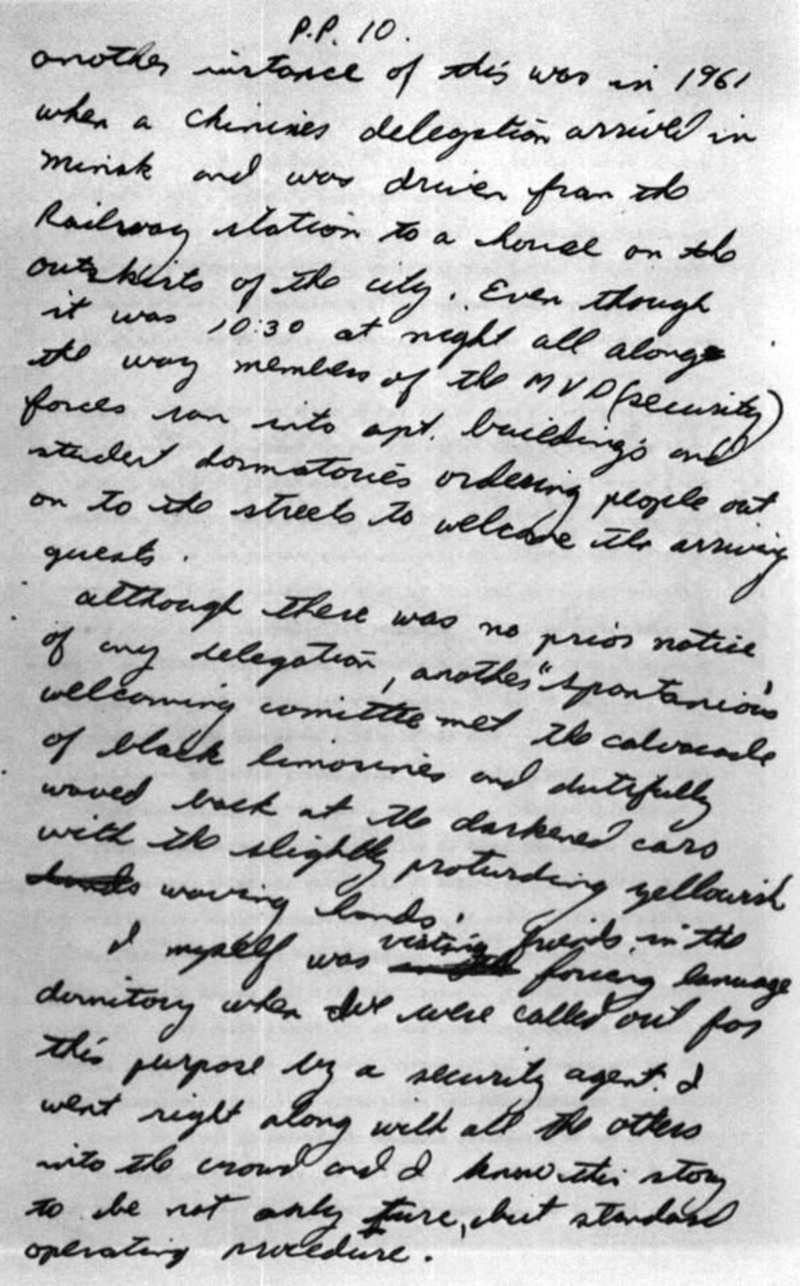 P.P. 10.
another instance of this was in 1961
when a Chinises delegation arrived in
Minsk and was driven from the
Railway station to a house on the
outskirts of the city. Even though
it was 10:30 at night all along
the way members of the MVD (security)
forces ran into apt. buildings and
student dormatories ordering people out
on to the streets to welcome the arriving
guests
although there was no prior notice
of any delegation, another "spontanious
welcoming comittee met the calvacade
of black limosines and dutifully
waved back at the darkened cars
with the slightly proturding yellowish
hands waving hands.
I myself was visting friends in the
forieng lanuage
dormitory when we were called out for
this purpose by a security agent. I
went right along with all the others
into the crowd and I know this story
to be not only ture, but standard
operating procedure.